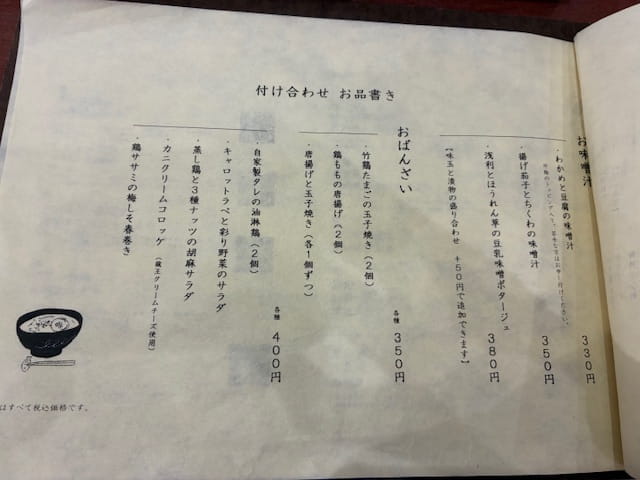 付け合わせ お品書き
お味噌汁
・わかめと豆腐の味噌汁 330円
・揚げ茄子とちくわの味噌汁 350円
・浅利とほうれん草の豆乳味噌ポタージュ 380円
【味玉と漬物の盛り合わせ +50円で追加できます】
おばんざい
各種 350円
・竹鶏たまごの玉子焼き(2個)
・鶏ももの唐揚げ(2個)
・唐揚げと玉子焼き(各1個ずつ)
各種 400円
・自家製タレの油淋鶏(2個)
・キャロットラペと彩り野菜のサラダ
・蒸し鶏と3種ナッツの胡麻サラダ
・カニクリームコロッケ(蔵王クリームチーズ使用)
・鶏ササミの梅しそ春巻き
はすべて税込価格です。